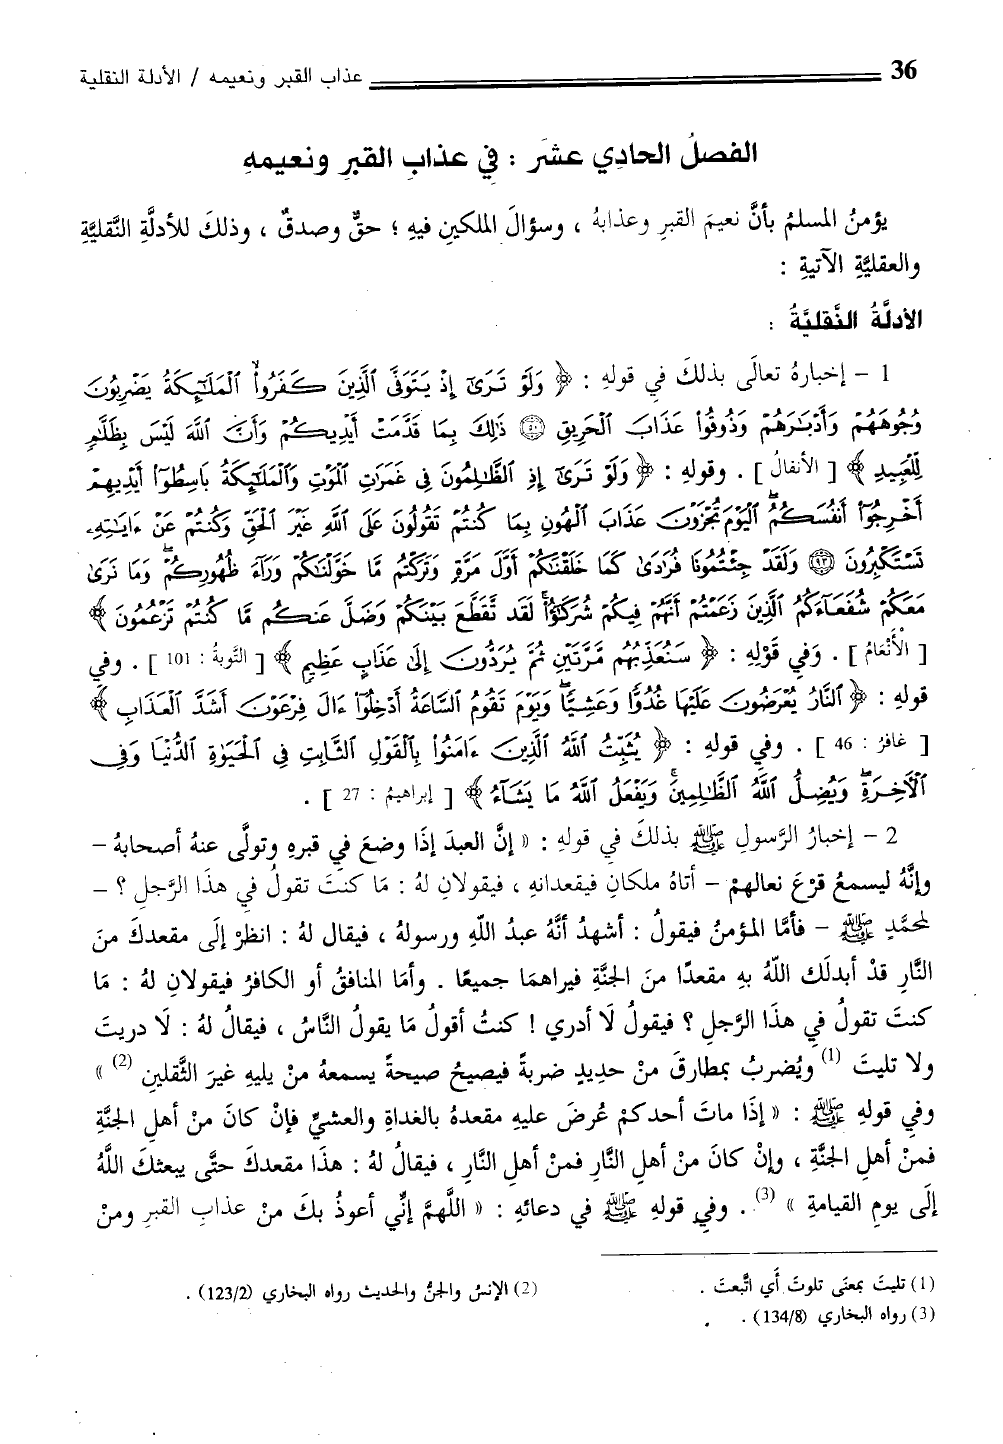 36 عذاب القبر ونعيمه / الأدلة النقلية
الفصلُ الحادِي عشَر : في عذابِ القبرِ ونعيمهِ
يؤمنُ المسلمُ بأنَّ نعيمَ القبرِ وعذابهُ ، وسؤالَ الملكينِ فيهِ ؛ حقٌّ وصدقٌ ، وذلكَ للأدلَّةِ النَّقليَّةِ
والعقليَّةِ الآتيةِ :
الأدلَّةُ النَّقليَّةُ :
1 - إخبارهُ تعالَى بذلكَ في قولهِ : ﴿ وَلَوْ تَرَىٰٓ إِذْ يَتَوَفَّى ٱلَّذِينَ كَفَرُوا۟ ۙ ٱلْمَلَٰٓئِكَةُ يَضْرِبُونَ
وُجُوهَهُمْ وَأَدْبَٰرَهُمْ وَذُوقُوا۟ عَذَابَ ٱلْحَرِيقِ ۝٥٠ ذَٰلِكَ بِمَا قَدَّمَتْ أَيْدِيكُمْ وَأَنَّ ٱللَّهَ لَيْسَ بِظَلَّٰمٍ
لِّلْعَبِيدِ ﴾ [ الأنفالُ ] . وقولهِ : ﴿ وَلَوْ تَرَىٰٓ إِذِ ٱلظَّٰلِمُونَ فِى غَمَرَٰتِ ٱلْمَوْتِ وَٱلْمَلَٰٓئِكَةُ بَاسِطُوٓا۟ أَيْدِيهِمْ
أَخْرِجُوٓا۟ أَنفُسَكُمُ ۖ ٱلْيَوْمَ تُجْزَوْنَ عَذَابَ ٱلْهُونِ بِمَا كُنتُمْ تَقُولُونَ عَلَى ٱللَّهِ غَيْرَ ٱلْحَقِّ وَكُنتُمْ عَنْ ءَايَٰتِهِۦ
تَسْتَكْبِرُونَ ۝٩٣ وَلَقَدْ جِئْتُمُونَا فُرَٰدَىٰ كَمَا خَلَقْنَٰكُمْ أَوَّلَ مَرَّةٍ وَتَرَكْتُم مَّا خَوَّلْنَٰكُمْ وَرَآءَ ظُهُورِكُمْ ۖ وَمَا نَرَىٰ
مَعَكُمْ شُفَعَآءَكُمُ ٱلَّذِينَ زَعَمْتُمْ أَنَّهُمْ فِيكُمْ شُرَكَٰٓؤُا۟ ۚ لَقَد تَّقَطَّعَ بَيْنَكُمْ وَضَلَّ عَنكُم مَّا كُنتُمْ تَزْعُمُونَ ﴾
[ الأَنْعَامُ ] . وَفي قَوْلِهِ : ﴿ سَنُعَذِّبُهُم مَّرَّتَيْنِ ثُمَّ يُرَدُّونَ إِلَىٰ عَذَابٍ عَظِيمٍ ﴾ [ التَّوبةُ : 101 ] . وفي
قولهِ : ﴿ ٱلنَّارُ يُعْرَضُونَ عَلَيْهَا غُدُوًّا وَعَشِيًّا ۖ وَيَوْمَ تَقُومُ ٱلسَّاعَةُ أَدْخِلُوٓا۟ ءَالَ فِرْعَوْنَ أَشَدَّ ٱلْعَذَابِ ﴾
[ غافرُ : 46 ] . وفي قولهِ : ﴿ يُثَبِّتُ ٱللَّهُ ٱلَّذِينَ ءَامَنُوا۟ بِٱلْقَوْلِ ٱلثَّابِتِ فِى ٱلْحَيَوٰةِ ٱلدُّنْيَا وَفِى
ٱلْءَاخِرَةِ ۖ وَيُضِلُّ ٱللَّهُ ٱلظَّٰلِمِينَ ۚ وَيَفْعَلُ ٱللَّهُ مَا يَشَآءُ ﴾ [ إبراهيمُ : 27 ] .
2 - إخبارُ الرَّسولِ ﷺ بذلكَ في قولهِ : « إنَّ العبدَ إذَا وضعَ في قبرهِ وتولَّى عنهُ أصحابهُ -
وإنَّهُ ليسمعُ قرْعَ نعالهمْ - أتاهُ ملكانِ فيقعدانهِ ، فيقولانِ لهُ : مَا كنتَ تقولُ في هذَا الرَّجلِ ؟ -
لمحمَّدٍ ﷺ - فأمَّا المؤمنُ فيقولُ : أشهدُ أنَّهُ عبدُ اللّهِ ورسولهُ ، فيقال لهُ : انظرْ إلَى مقعدكَ منَ
النَّارِ قدْ أبدلَك اللّهُ بهِ مقعدًا منَ الجنَّةِ فيراهمَا جميعًا . وأمَا المنافقُ أو الكافرُ فيقولانِ لهُ : مَا
كنتَ تقولُ في هذَا الرَّجلِ ؟ فيقولُ لَا أدري ! كنتُ أقولُ مَا يقولُ النَّاسُ ، فيقالُ لهُ : لَا دريتَ
ولَا تليتَ (1) ويُضربُ بمطارقَ منْ حديدٍ ضربةً فيصيحُ صيحةً يسمعهُ منْ يليهِ غيرَ الثَّقلينِ (2) »
وفي قولهِ ﷺ : « إذَا ماتَ أحدكمْ عُرضَ عليهِ مقعدهُ بالغداةِ والعشيِّ فإنْ كانَ منْ أهلِ الجنَّةِ
فمنْ أهلِ الجنَّةِ ، وإنْ كانَ منْ أهلِ النَّارِ فمنْ أهلِ النَّارِ ، فيقالُ لهُ : هذَا مقعدكَ حتَّى يبعثكَ اللّهُ
إلَى يومِ القيامةِ » (3) . وفي قولهِ ﷺ في دعائهِ : « اللَّهمَّ إنِّي أعوذُ بكَ منْ عذابِ القبرِ ومنْ
(1) تليتَ بمعنَى تلوتَ أَي اتَّبعتَ . (2) الإنسُ والجنُّ والحديث رواه البخاري (123/2) .
(3) رواه البخاري (134/8) .